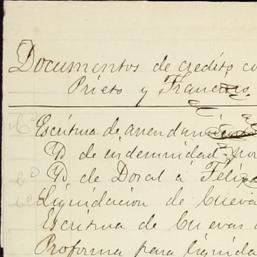 Documentos de crédito co
Prieto y Franci
Escritura de arendami
Yd de indemnidad, por
Yd de Doral á Felipe
Liquidacion de Cueva
Escritura de Cuevas a
Proforma para liquida